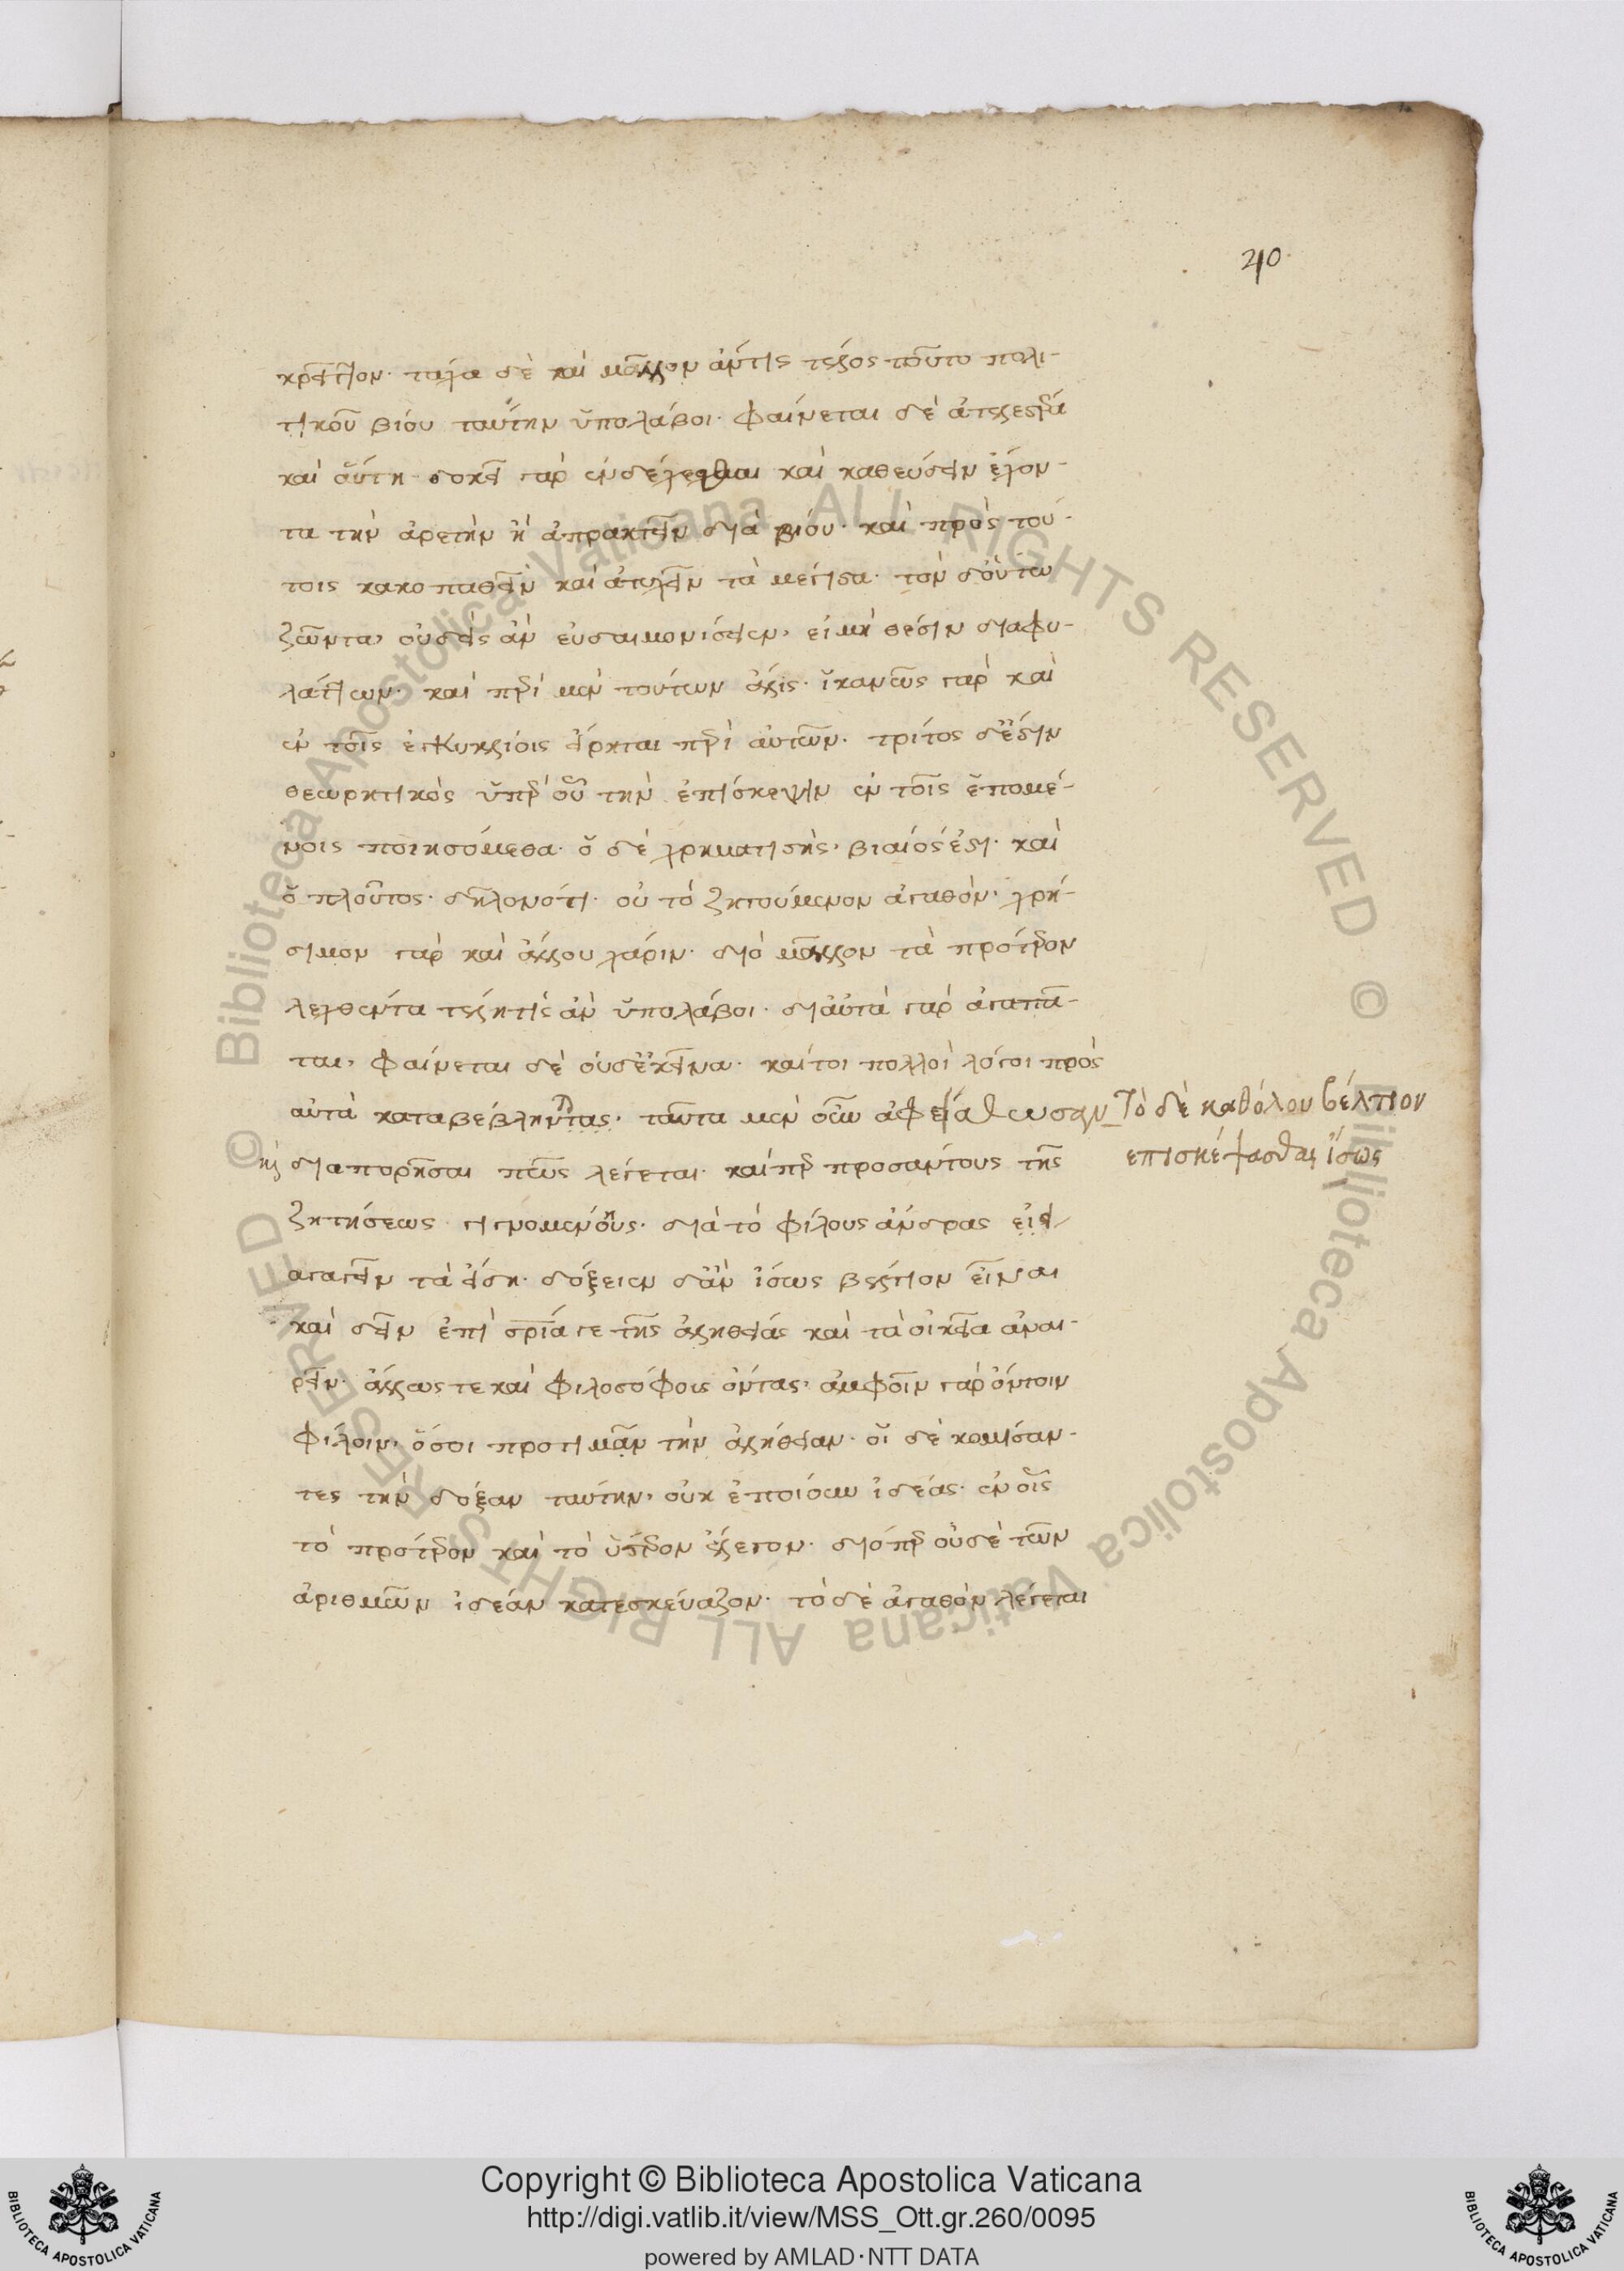 40
κρεῖττον· τάχα δὲ καὶ μᾶλλον ἄν τις τέλος τοῦ το πολι-
τικοῦ βίου ταύτην ὑπολάβοι· φαίνεται δὲ ἀτελεστέρα
καὶ αὕτη· δοκεῖ γὰρ ἐνδέχεσθαι καὶ καθεύδειν ἔχον-
τα τὴν ἀρετὴν ἢ ἀπρακτεῖν διὰ βίου· καὶ πρὸς τού-
τοις κακοπαθεῖν καὶ ἀτυχεῖν τὰ μέγιστα· τὸν δ' οὕτω
ζῶντα, οὐδεὶς ἂν εὐδαιμονίσειεν, εἰ μὴ θέσιν διαφυ-
λάττων· καὶ περὶ μὲν τούτων ἅλις· ἱκανῶς γὰρ καὶ
ἐν τοῖς ἐγκυκλίοις εἴρηται περὶ αὐτῶν· τρίτος δ' ἐστὶν
θεωρητικὸς ὑπὲρ οὗ τὴν ἐπίσκεψιν ἐν τοῖς ἑπομέ-
νοις ποιησόμεθα· ὁ δὲ χρηματιστὴς, βίαιός ἐστι· καὶ
ὁ πλοῦτος· δῆλον ὅτι· οὐ τὸ ζητούμενον ἀγαθόν, χρή-
σιμον γὰρ καὶ ἄλλου χάριν· διὸ μᾶλλον τὰ πρότερον
λεχθέντα τέλη τίς ἂν ὑπολάβοι· δι' αὐτὰ γὰρ ἀγαπᾶ-
ται, φαίνεται δὲ οὐδ' ἐκεῖνα· καίτοι πολλοὶ λόγοι πρὸς
αὐτὰ καταβέβληνται· ταῦτα μὲν οὖν ἀφείσθωσαν Τὸ δὲ καθόλου βέλτιον
ἐπισκέψασθαι ἴσως
καὶ διαπορῆσαι πῶς λέγεται· καίπερ προσάντους τῆς
ζητήσεως γινομένης· διὰ τὸ φίλους ἄνδρας εἰσ-
αγαγεῖν τὰ εἴδη· δόξειεν δ' ἂν ἴσως βέλτιον εἶναι
καὶ δεῖν ἐπὶ σωτηρίᾳ γε τῆς ἀληθείας καὶ τὰ οἰκεῖα ἀναι-
ρεῖν· ἄλλως τε καὶ φιλοσόφους ὄντας, ἀμφοῖν γὰρ ὄντοιν
φίλοιν, ὅσοι προτιμᾶν τὴν ἀλήθειαν· οἱ δὲ κομίσαν-
τες τὴν δόξαν ταύτην, οὐκ ἐποίουν ἰδέας· ἐν οἷς
τὸ πρότερον καὶ τὸ ὕστερον ἔλεγον· διόπερ οὐδὲ τῶν
ἀριθμῶν ἰδέαν κατεσκεύαζον· τὸ δὲ ἀγαθὸν λέγεται
© Biblioteca Apostolica Vaticana ALL RIGHTS RESERVED © Biblioteca Apostolica Vaticana ALL RIGHTS RESERVED
Copyright © Biblioteca Apostolica Vaticana
http://digi.vatlib.it/view/MSS_Ott.gr.260/0095
powered by AMLAD·NTT DATA
BIBLIOTECA APOSTOLICA VATICANA
BIBLIOTECA APOSTOLICA VATICANA